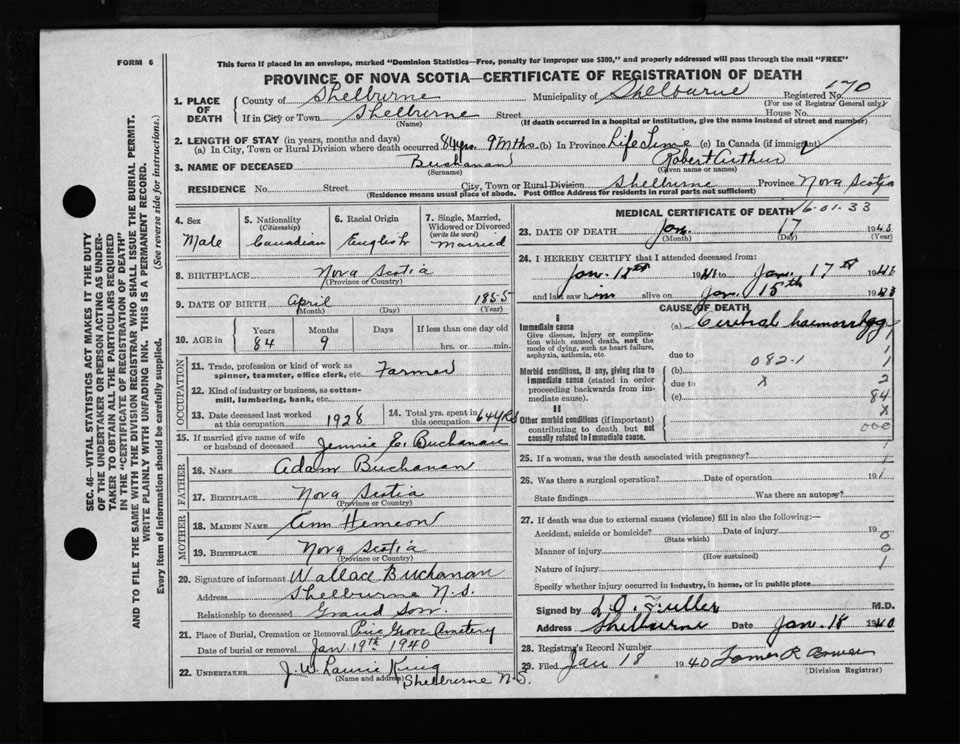 FORM 6
This form if placed in an envelope, marked "Dominion Statistics—Free, penalty for improper use $300," and properly addressed will pass through the mail "FREE"
PROVINCE OF NOVA SCOTIA—CERTIFICATE OF REGISTRATION OF DEATH
1. PLACE OF DEATH County of Shelburne Municipality of Shelburne Registered No. 170
(For use of Registrar General only)
If in City or Town Shelburne Street House No.
(Name) (If death occurred in a hospital or institution, give the name instead of street and number)
2. LENGTH OF STAY (in years, months and days)
(a) In City, Town or Rural Division where death occurred 84 yrs. 9 Mths. (b) In Province Life Time (c) In Canada (if immigrant)
3. NAME OF DECEASED Buchanan Robert Arthur
(Surname) (Given name or names)
RESIDENCE No. Street City, Town or Rural Division Shelburne Province Nova Scotia
(Residence means usual place of abode. Post Office Address for residents in rural parts not sufficient)
4. Sex Male
5. Nationality (Citizenship) Canadian
6. Racial Origin English
7. Single, Married, Widowed or Divorced (write the word) Married
8. BIRTHPLACE Nova Scotia
(Province or Country)
9. DATE OF BIRTH April 1855
(Month) (Day) (Year)
10. AGE in Years 84 Months 9 Days If less than one day old hrs. or min.
OCCUPATION
11. Trade, profession or kind of work as spinner, teamster, office clerk, etc. Farmer
12. Kind of industry or business, as cotton-mill, lumbering, bank, etc.
13. Date deceased last worked at this occupation 1928
14. Total yrs. spent in this occupation 64 yrs
15. If married give name of wife or husband of deceased Jennie E. Buchanan
FATHER
16. NAME Adam Buchanan
17. BIRTHPLACE Nova Scotia
(Province or Country)
MOTHER
18. MAIDEN NAME Ann Hemeon
19. BIRTHPLACE Nova Scotia
(Province or Country)
20. Signature of informant Wallace Buchanan
Address Shelburne N.S.
Relationship to deceased Grand Son.
21. Place of Burial, Cremation or Removal Pine Grove Cemetery
Date of burial or removal Jan. 19th 1940
22. UNDERTAKER J. W. Laurie King
(Name and address) Shelburne N.S.
MEDICAL CERTIFICATE OF DEATH 16-01-33
23. DATE OF DEATH Jan. 17
(Month) (Day) (Year)
24. I HEREBY CERTIFY that I attended deceased from:
Jan. to Jan. 17
and last saw him alive on Jan. 15th
CAUSE OF DEATH
I
Immediate cause (a) Cerebral haemorrhage
Give disease, injury or complication which caused death, not the mode of dying, such as heart failure, asphyxia, asthenia, etc
due to 082.1 1
Morbid conditions, if any, giving rise to immediate cause (stated in order proceeding backwards from immediate cause). (b)
due to x 2
(c) 84
II
Other morbid conditions (if important) contributing to death but not causally related to immediate cause. x
000
25. If a woman, was the death associated with pregnancy? 1
26. Was there a surgical operation? Date of operation 19
State findings Was there an autopsy?
27. If death was due to external causes (violence) fill in also the following:—
Accident, suicide or homicide? Date of injury 19 0
(State which)
Manner of injury 0
(How sustained)
Nature of injury 1
Specify whether injury occurred in industry, in home, or in public place
Signed by L. O. Fuller M.D.
Address Shelburne Date Jan. 18 1940
28. Registrar's Record Number
29. Filed Jan 18 1940 James R Bower
(Division Registrar)
SEC. 46—VITAL STATISTICS ACT MAKES IT THE DUTY
OF THE UNDERTAKER OR PERSON ACTING AS UNDERTAKER TO OBTAIN ALL THE PARTICULARS REQUIRED
IN THE "CERTIFICATE OF REGISTRATION OF DEATH"
AND TO FILE THE SAME WITH THE DIVISION REGISTRAR WHO SHALL ISSUE THE BURIAL PERMIT.
WRITE PLAINLY WITH UNFADING INK. THIS IS A PERMANENT RECORD.
Every item of information should be carefully supplied. (See reverse side for instructions.)